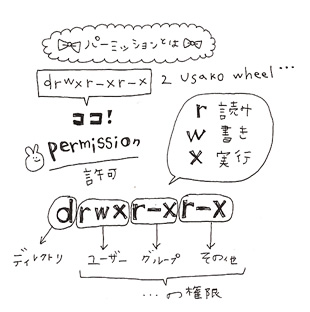 パーミッションとは
drwxr-xr-x 2 usako wheel…
ココ!
permission
許可
r 読み
w 書き
x 実行
drwxr-xr-x
ディレクトリ ユーザー グループ その他
…の権限